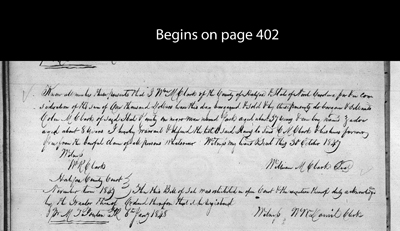 Begins on page 402
Know all men by these presents that I Wm M. Clark of the County of Halifax & State of North Carolina for & in con
sideration of the sum of One thousand Dollars have this day bargained & sold & by these presents do bargain & sell and
Colin M. Clark of said State & County one man named Jack aged about 27 years & one boy named
aged about 8 years I hereby warrant & defend the title to said to him C. M. Clark & his heirs forever
from the lawful claim of all persons whatever Witness my hand & seal this 30 October 1847
Witness
W R Clark William M. Clark Seal
Halifax County Court
November term 1847 Then this Bill of Sale was exhibited in open Court & the execution thereof duly acknowledged
by the Grantor Ordered therefore that it be registered
8th Jany 1848 Witness Clerk